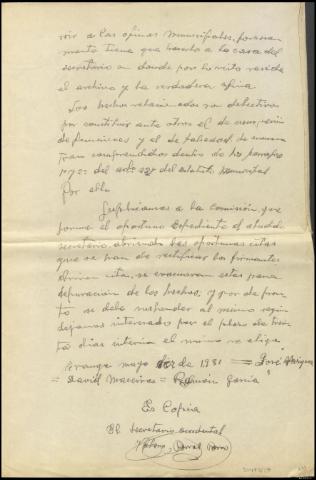 rrir a las oficinas municipales, forzosa
mente tiene que hacerlo a la casa del
secretario en donde por lo visto reside
el archivo y la verdadera oficina
Los hechos relacionados son delictivos
por constituir ante otros el de
de funciones y el de falsedad, de manera
comprendidos dentro de los parrafos
1º y 2º del artº 237 del estatuto municipal
Por ello
Suplicamos a la comisión que
forme el oportuno expediente al aludido
secretario, abriendo las oportunas
que se han de ratificar los firmantes
se evacuaran estas para
depuración de los hechos, y por de pron
to se debe suspender al mismo según
dejamos interesado por el plazo de trein
ta dias interin el mismo no
mayo de 1931 = José
= David Maceiras = Ramón Garcia
Es Copia
El secretario accidental